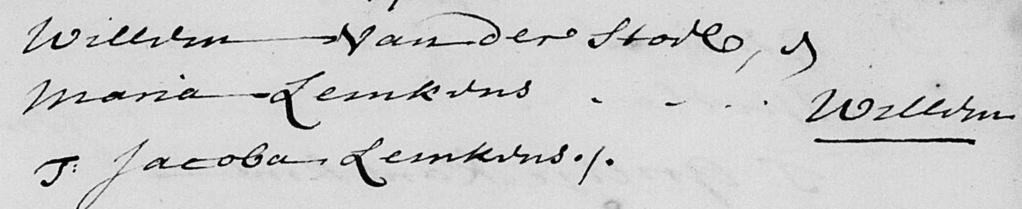 Willem Van der Stoel, &
Maria Lemkens . - . . Willem
T: Jacoba Lemkens./.